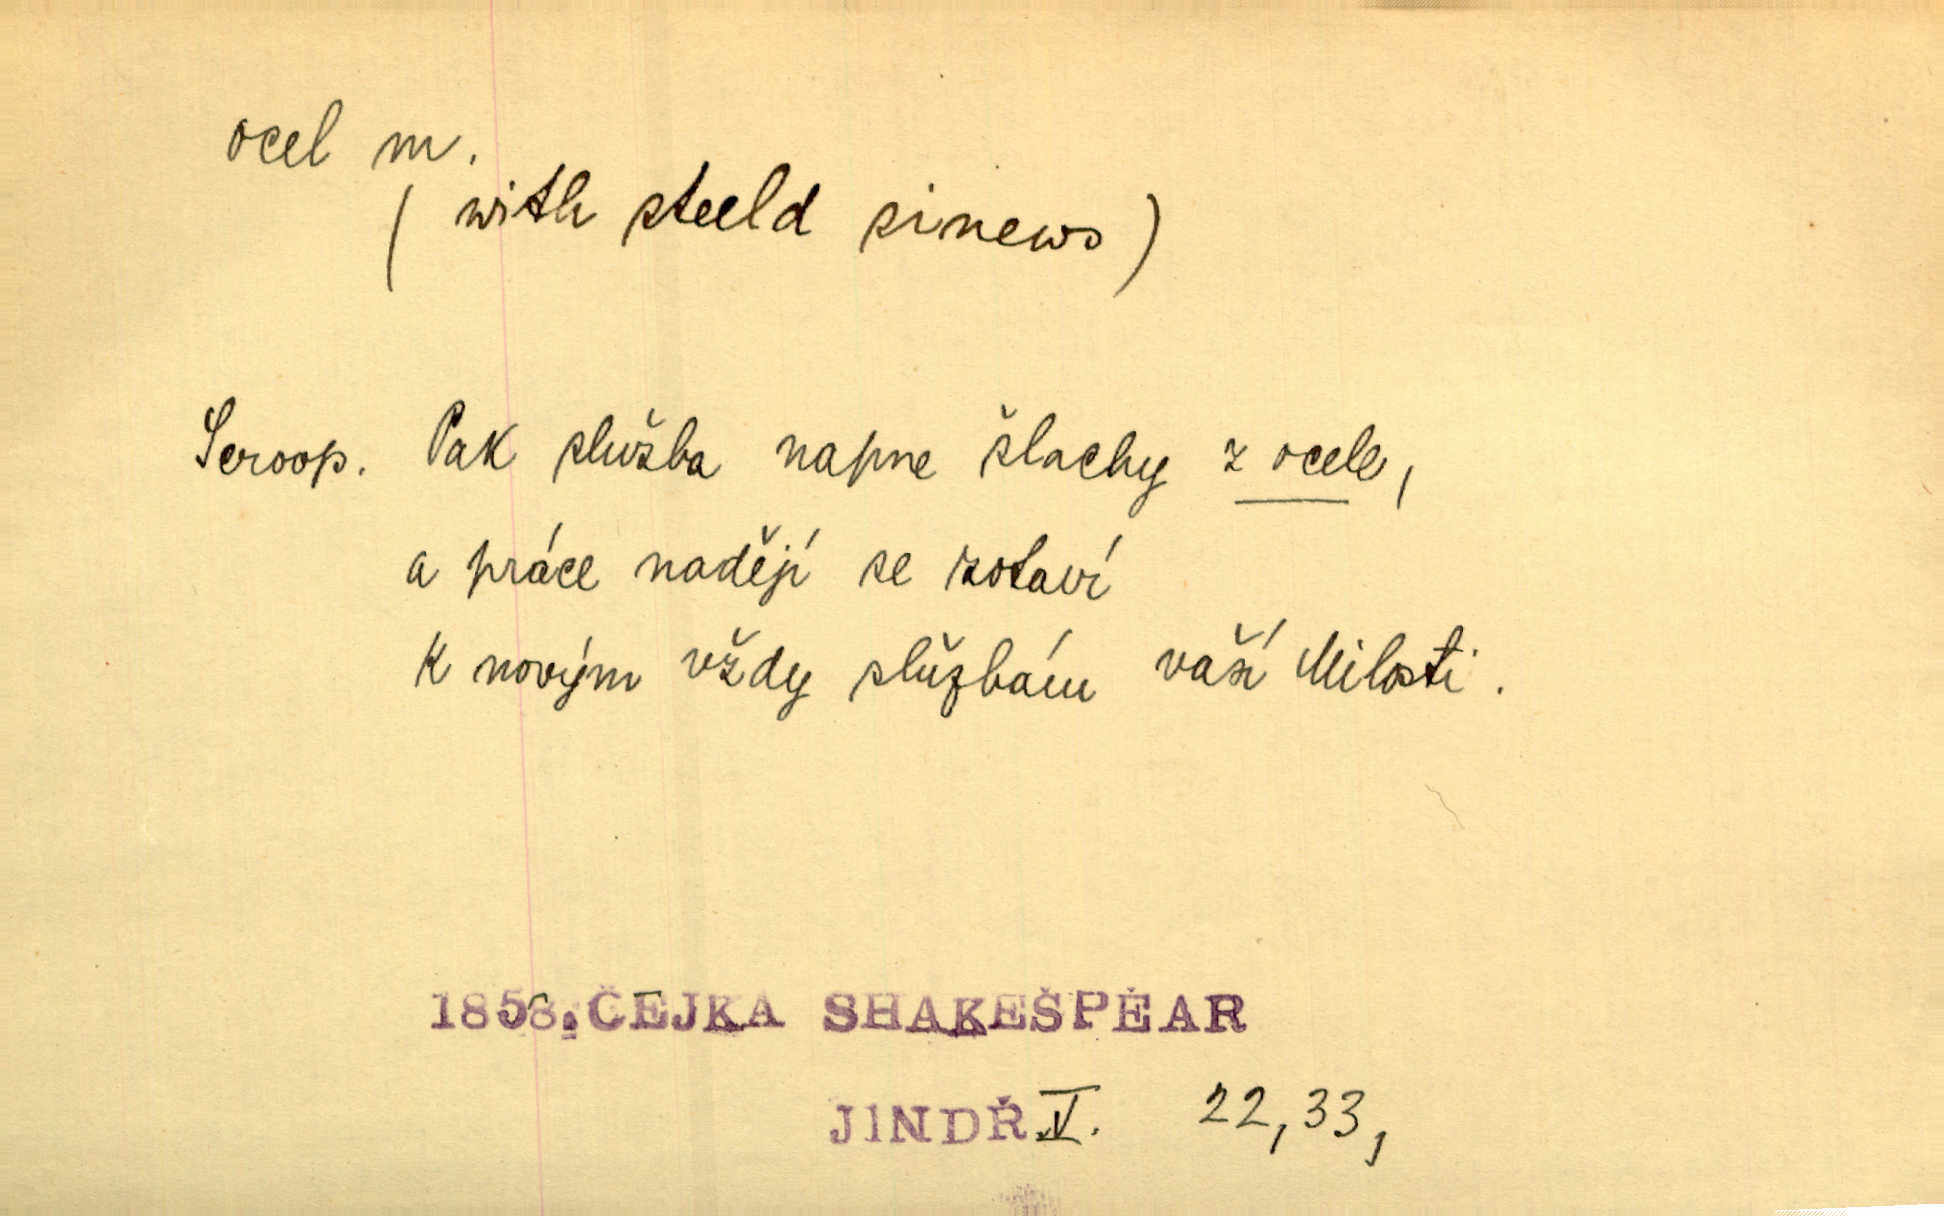 ocel m.
( with steeld sinews )
Scroop. Pak služba napne šlachy z ocele,
a práce nadějí se zotaví
k novým vždy službám vaší Milosti.
1858. ČEJKA SHAKEŠPÉAR
JINDŘ V. 22,33,